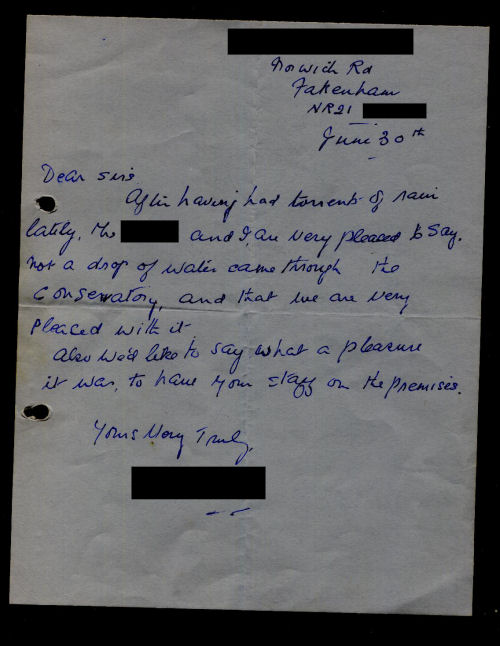 Norwich Rd
Fakenham
NR21
June 30th
Dear sirs
After having had torrents of rain
lately, the and I, are very pleased to say.
not a drop of water came through the
Conservatory, and that we are very
pleased with it
Also we'd like to say what a pleasure
it was, to have your staff on the premises.
Yours Very Truly,